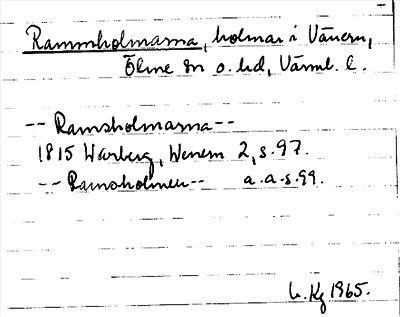 Rammholmarna, holmar i Vänern,
Ölme sn o. hd, Värml. l.
-- Ramsholmarna --
1815 Warberg, Wenern 2, s. 97.
-- Ramsholmen -- a.a. s. 99.
Kg 1965.